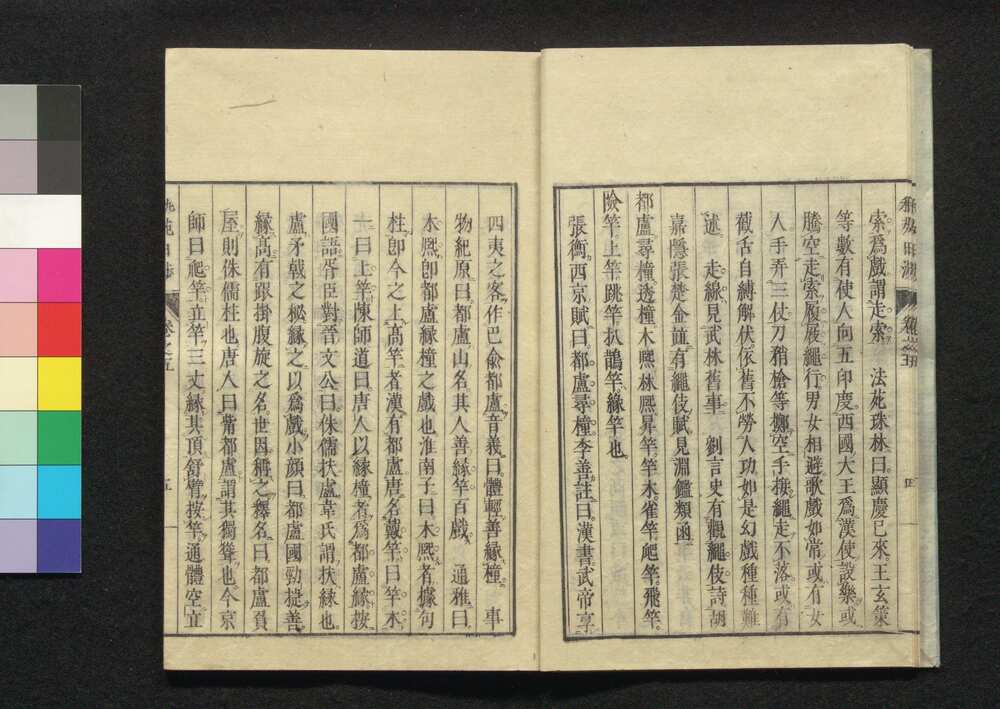 索爲戲謂走索　法苑珠林曰顯慶已來王玄策
等數有使人向五印度西國大王爲漢使設樂或
騰空走索履屐繩行男女相避歌戲如常或有女
人手弄三仗刀稍槍等擲空手接繩走不落或有
截舌自縛解伏依舊不勞人功如是幻戲種種難
述　走緣見武林舊事　劉言史有觀繩伎詩胡
嘉隱張楚金竝有繩伎賦見淵鑑類函
都盧尋橦透橦木熙林熙昇竿竿木雀竿爬竿飛竿
險竿上竿跳竿扒鵲竿緣竿也
張衡西京賦曰都盧尋橦李善註曰漢書武帝享
四
四夷之客作巴兪都盧音義曰體輕善緣橦　事
物紀原曰都盧山名其人善緣竿百戲　通雅曰
木熙卽都盧緣橦之戲也淮南子曰木熙者據句
枉卽今之上高竿者漢有都盧唐名戴竿曰竿木
一曰上竿陳師道曰唐人以緣橦者爲都盧緣按
國語胥臣對晉文公曰侏儒扶盧韋氏謂扶緣也
盧矛戟之柲緣之以爲戲小顏曰都盧國勁捷善
緣高有跟掛腹旋之名世因稱之釋名曰都盧負
屋則侏儒柱也唐人曰葡都盧謂其獨聳也今京
師曰爬竿立竿三丈緣其頂舒臂按竿通體空立
卷之五
五